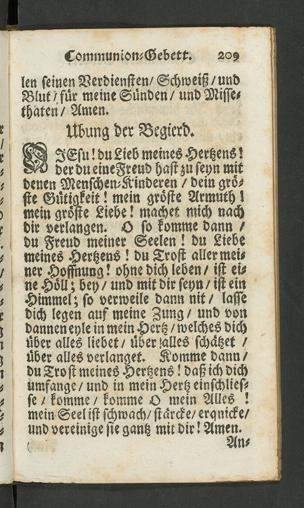 Communion-Gebett. 209
len seinen Verdiensten/ Schweiß/ und
Blut/ für meine Sünden/ und Misse-
thaten/ Amen.
Ubung der Begierd.
O JEsu! du Lieb meines Hertzens!
der du eine Freud hast zu seyn mit
denen Menschen-Kinderen/ dein grö-
ste Gütigkeit! mein gröste Armuth!
mein gröste Liebe! machet mich nach
dir verlangen. O so komme dann/
du Freud meiner Seelen! du Liebe
meines Hertzens! du Trost aller mei-
ner Hoffnung! ohne dich leben/ ist ei-
ne Höll; bey/ und mit dir seyn/ ist ein
Himmel; so verweile dann nit/ lasse
dich legen auf meine Zung/ und von
dannen eyle in mein Hertz/ welches dich
über alles liebet/ über alles schätzet/
über alles verlanget. Komme dann/
du Trost meines Hertzens! daß ich dich
umfange/ und in mein Hertz einschlies-
se/ komme/ komme O mein Alles!
mein Seel ist schwach/ stärcke/ erquicke/
und vereinige sie gantz mit dir! Amen.
An-